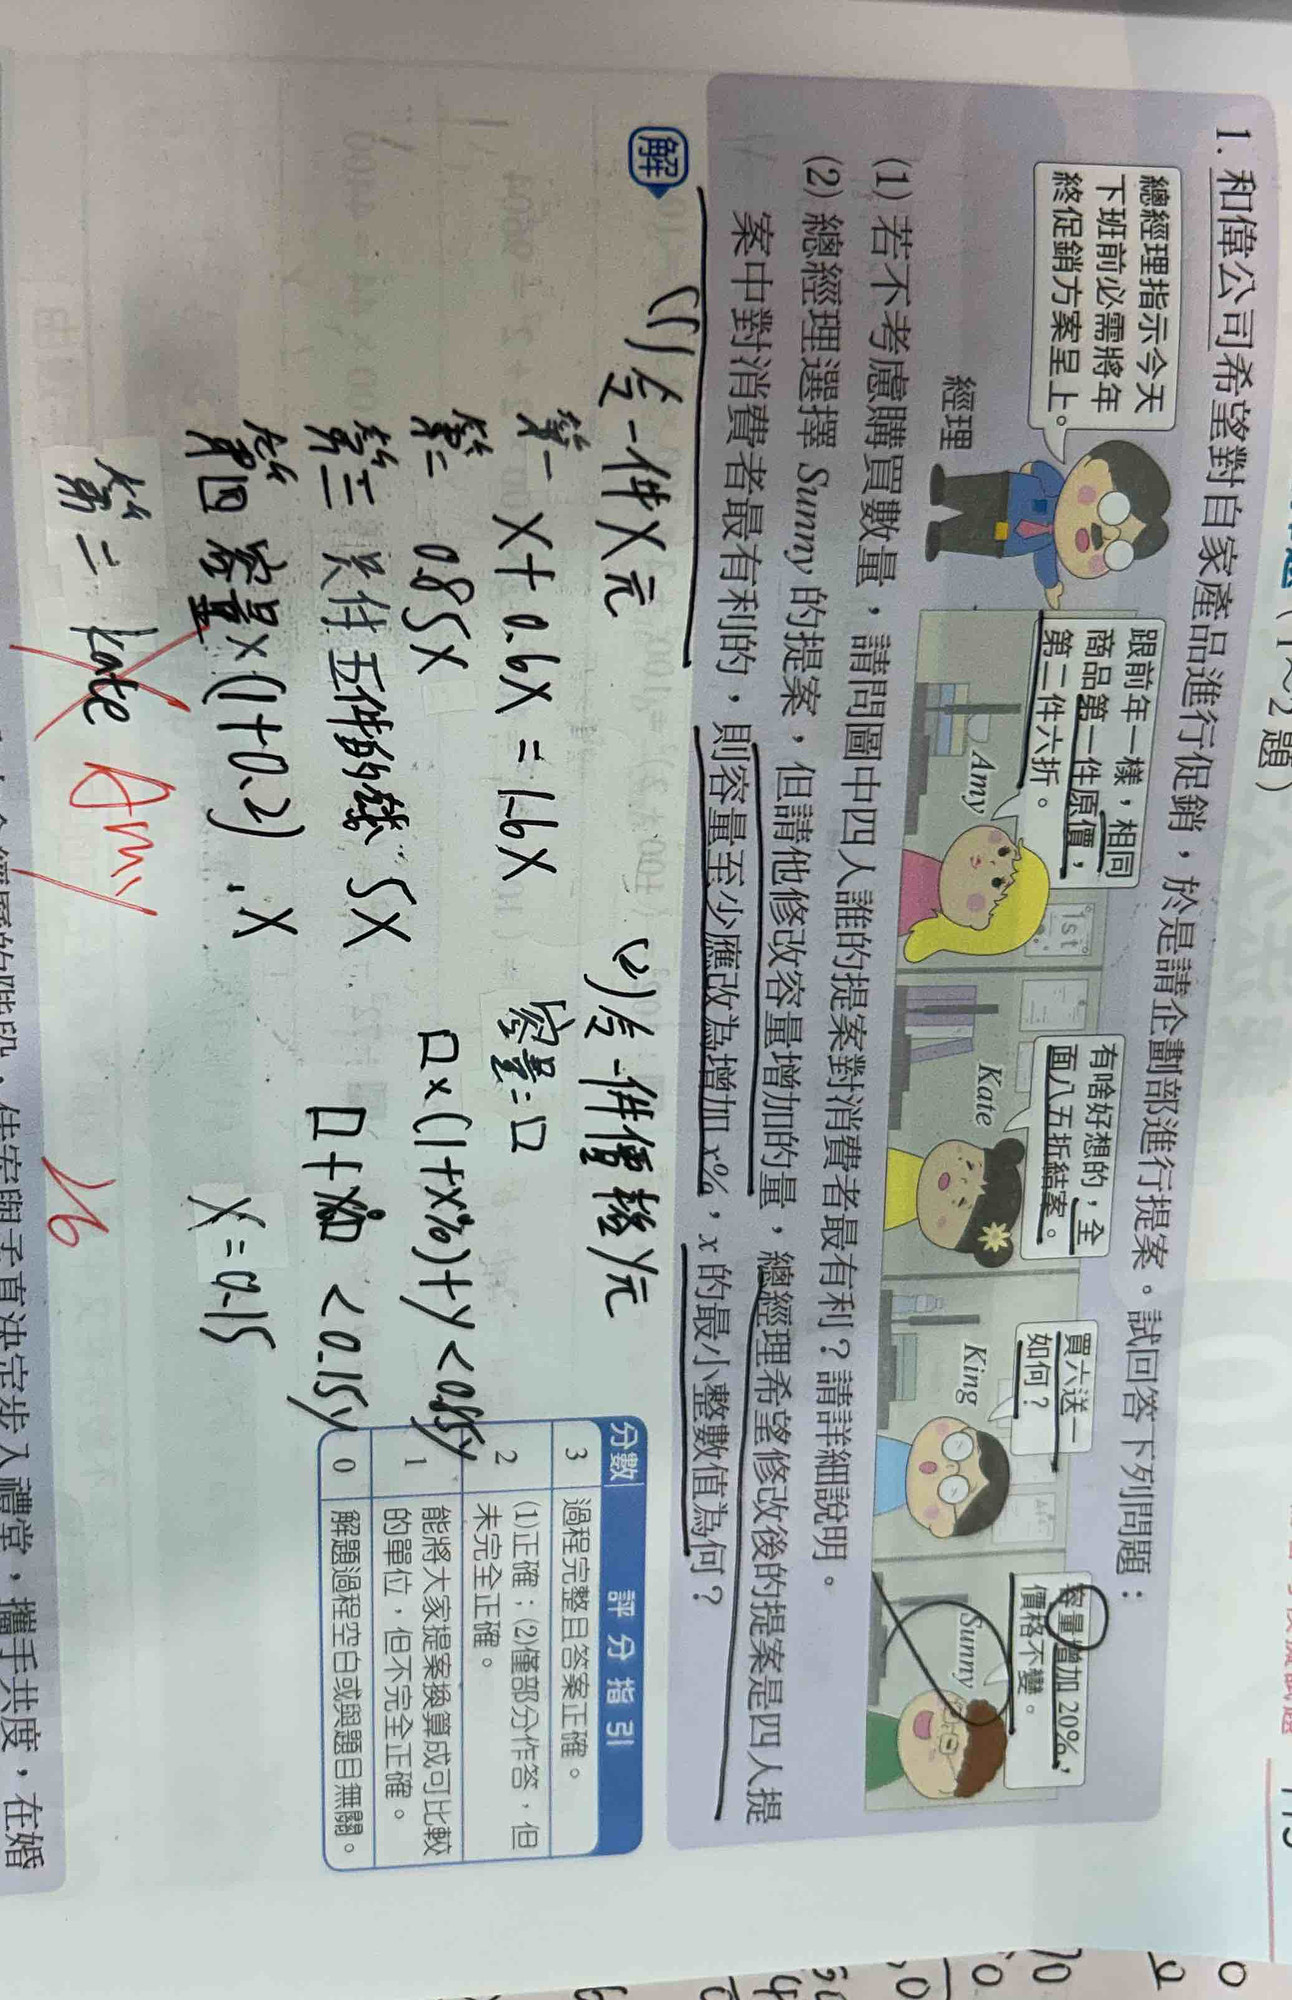 (1~2題)
1. 和偉公司希望對自家產品進行促銷,於是請企劃部進行提案。試回答下列問題:
總經理指示今天
下班前必需將年
終促銷方案呈上。
經理
跟前年一樣,相同
商品第一件原價,
第二件六折。
Amy
1st
有啥好想的,全
面八五折結案。
Kate
買六送一
如何?
King
容量增加 20%,
價格不變。
Sunny
(1) 若不考慮購買數量,請問圖中四人誰的提案對消費者最有利?請詳細說明。
(2) 總經理選擇 Sunny 的提案,但請他修改容量增加的量,總經理希望修改後的提案是四人提
案中對消費者最有利的,則容量至少應改為增加 x%,x 的最小整數值為何?
解
(1) 令一件X元
第一 X+0.6X=1.6X
第二 0.85X
第三 只付五件的錢 5X
第四 容量×(1+0.2).X
第二 Kate Amy
(2) 令一件價格y元
容量=口
口×(1+x%)+y<0.85y
<0.15y
X=0.15
16
分數 評分指引
3 過程完整且答案正確。
2 (1)正確;(2)僅部分作答,但
未完全正確。
1 能將大家提案換算成可比較
的單位,但不完全正確。
0 解題過程空白或與題目無關。
,攜手共度,在婚